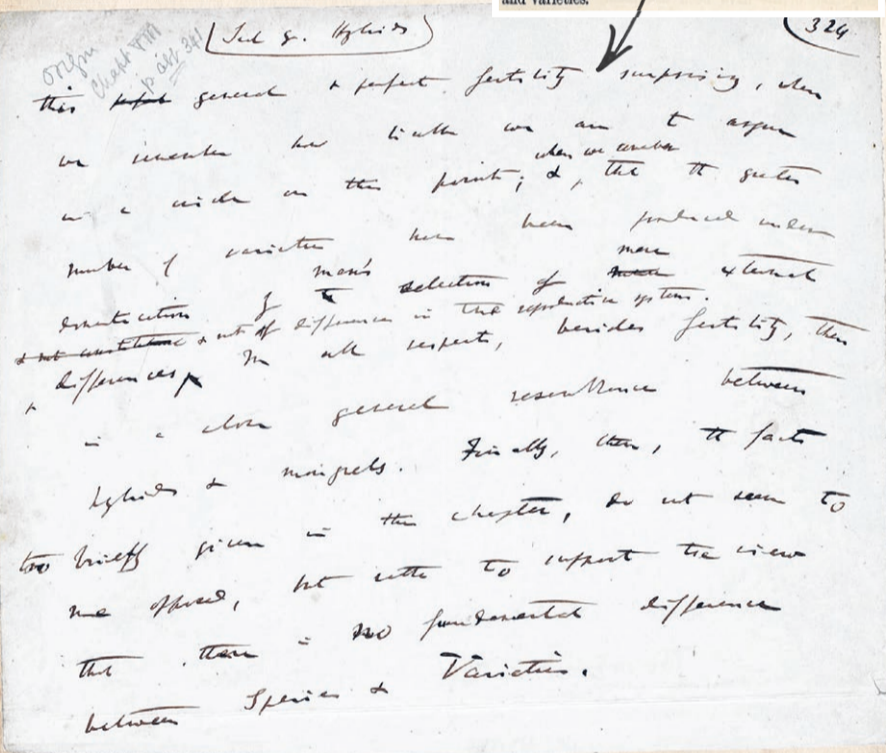 and varieties.
324
(Sect 9. Hybrids)
Origin
Chapt VIII
p
this perfect general & perfect fertility surprising, when
we remember how liable we are to argue
when we remember
in a circle on this point; &, that the greater
number of varieties have been produced under
domestication by man's the selection of mere external
& not of differences in the reproductive system.
differences, In all respects, besides fertility, there
is a close general resemblance between
hybrids & mongrels. Finally, then, the facts
too briefly given in this chapter, do not seem to
me opposed, but rather to support the view
that there is no fundamental difference
between Species & Varieties.